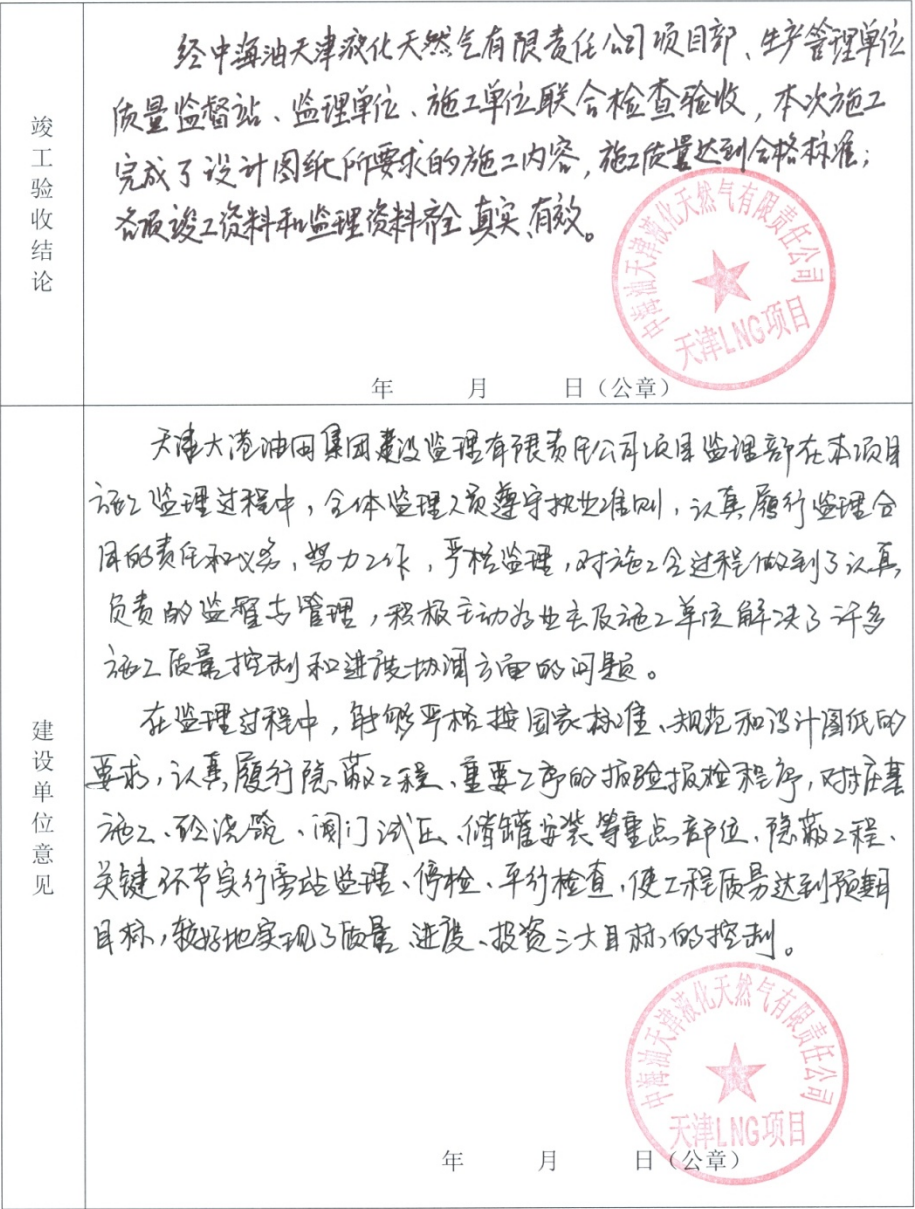 竣工验收结论
经中海油天津液化天然气有限责任公司项目部、生产管理单位
质量监督站、监理单位、施工单位联合检查验收，本次施工
完成了设计图纸所要求的施工内容，施工质量达到合格标准；
各项竣工资料和监理资料齐全、真实、有效。
中海油天津液化天然气有限责任公司
天津LNG项目
年 月 日（公章）
建设单位意见
天津大港油田集团建设监理有限责任公司项目监理部在本项目
施工监理过程中，全体监理人员遵守执业准则，认真履行监理合
同的责任和义务，努力工作，严格监理，对施工全过程做到了认真
负责的监督与管理，积极主动为业主及施工单位解决了许多
施工质量控制和进度协调方面的问题。
在监理过程中，能够严格按国家标准、规范和设计图纸的
要求，认真履行隐蔽工程、重要工序的报验报检程序，对桩基
施工、砼浇筑、阀门试压、储罐安装等重点部位、隐蔽工程、
关键环节实行旁站监理、停检、平行检查，使工程质量达到预期
目标，较好地实现了质量、进度、投资三大目标的控制。
中海油天津液化天然气有限责任公司
天津LNG项目
年 月 日（公章）